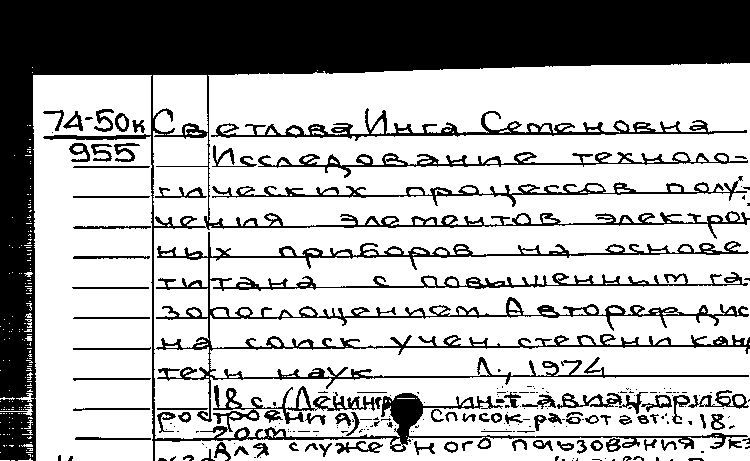 74-50к Светлова, Инга Семеновна
955 Исследование техноло-
гических процессов полу-
чения элементов электрон
ных приборов на основе
титана с повышенным га-
зопоглощением. Автореф. дис
на соиск учен. степени канд
техн наук Л., 1974
18 с. (Ленингр ин-т авиац. прибо-
ростроения) Список работ авт: с. 18.
20 см
Для служебного пользования Экз